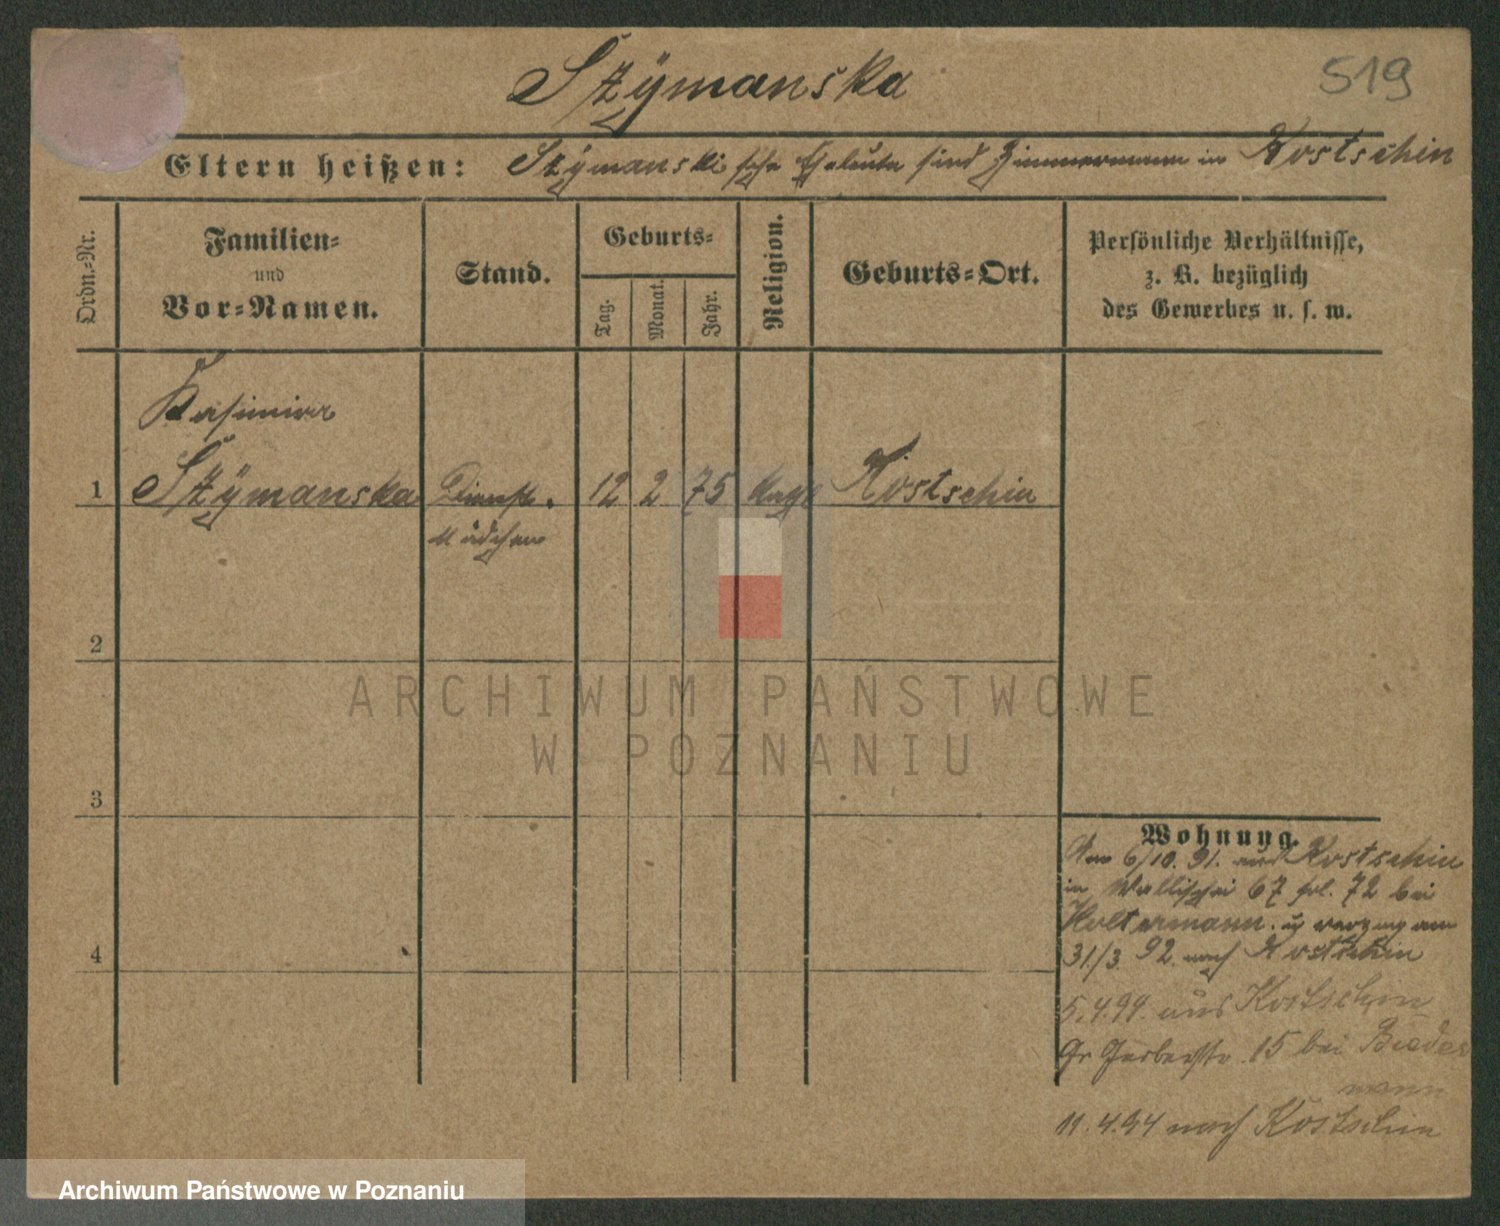 Szÿmanska
519
Eltern heißen: Szÿmanski'sche Eheleute sind Zimmermann in Kostschin
Ordn.-Nr.
Familien-
und
Vor-Namen.
Stand.
Geburts-
Tag.
Monat.
Jahr.
Religion.
Geburts-Ort.
Persönliche Verhältnisse,
z. B. bezüglich
des Gewerbes u. s. w.
Kasimira
1 Szÿmanska Dienst- 12 2 75 Kostschin
Mädchen
2
3
4
Wohnung.
6/10. 91. aus Kostschin
in Wallischei 67 72 bei
Holtermann. verzog am
31./3. 92. nach Kostschin
5.4.94. aus Kostschin
Gr Gerberstr. 15 bei Bieder
mann
11.4.94 nach Kostschin
ARCHIWUM PAŃSTWOWE
W POZNANIU
Archiwum Państwowe w Poznaniu